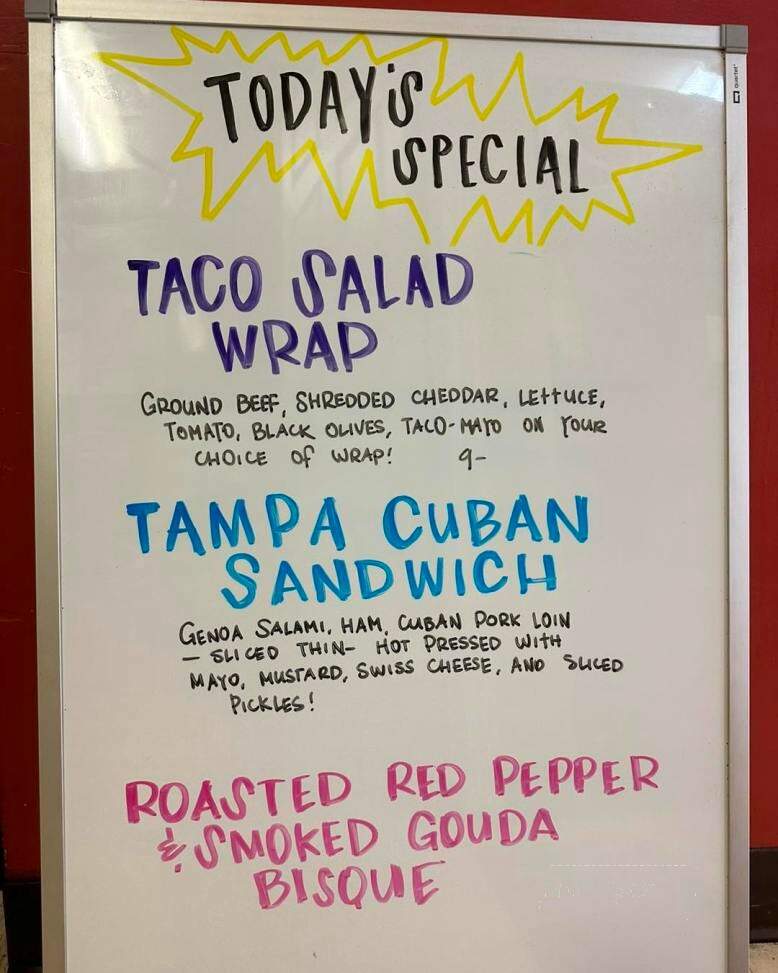 TODAY'S
SPECIAL
TACO SALAD
WRAP
GROUND BEEF, SHREDDED CHEDDAR, LETTUCE,
TOMATO, BLACK OLIVES, TACO-MAYO ON YOUR
CHOICE OF WRAP! 9-
TAMPA CUBAN
SANDWICH
GENOA SALAMI, HAM, CUBAN PORK LOIN
- SLICED THIN- HOT PRESSED WITH
MAYO, MUSTARD, SWISS CHEESE, AND SLICED
PICKLES!
ROASTED RED PEPPER
& SMOKED GOUDA
BISQUE
Quartet